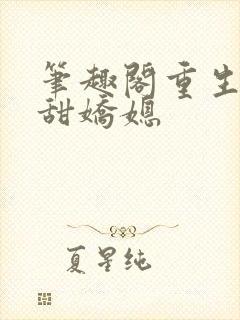 筆趣閣重生
甜嬌媳
夏星纯